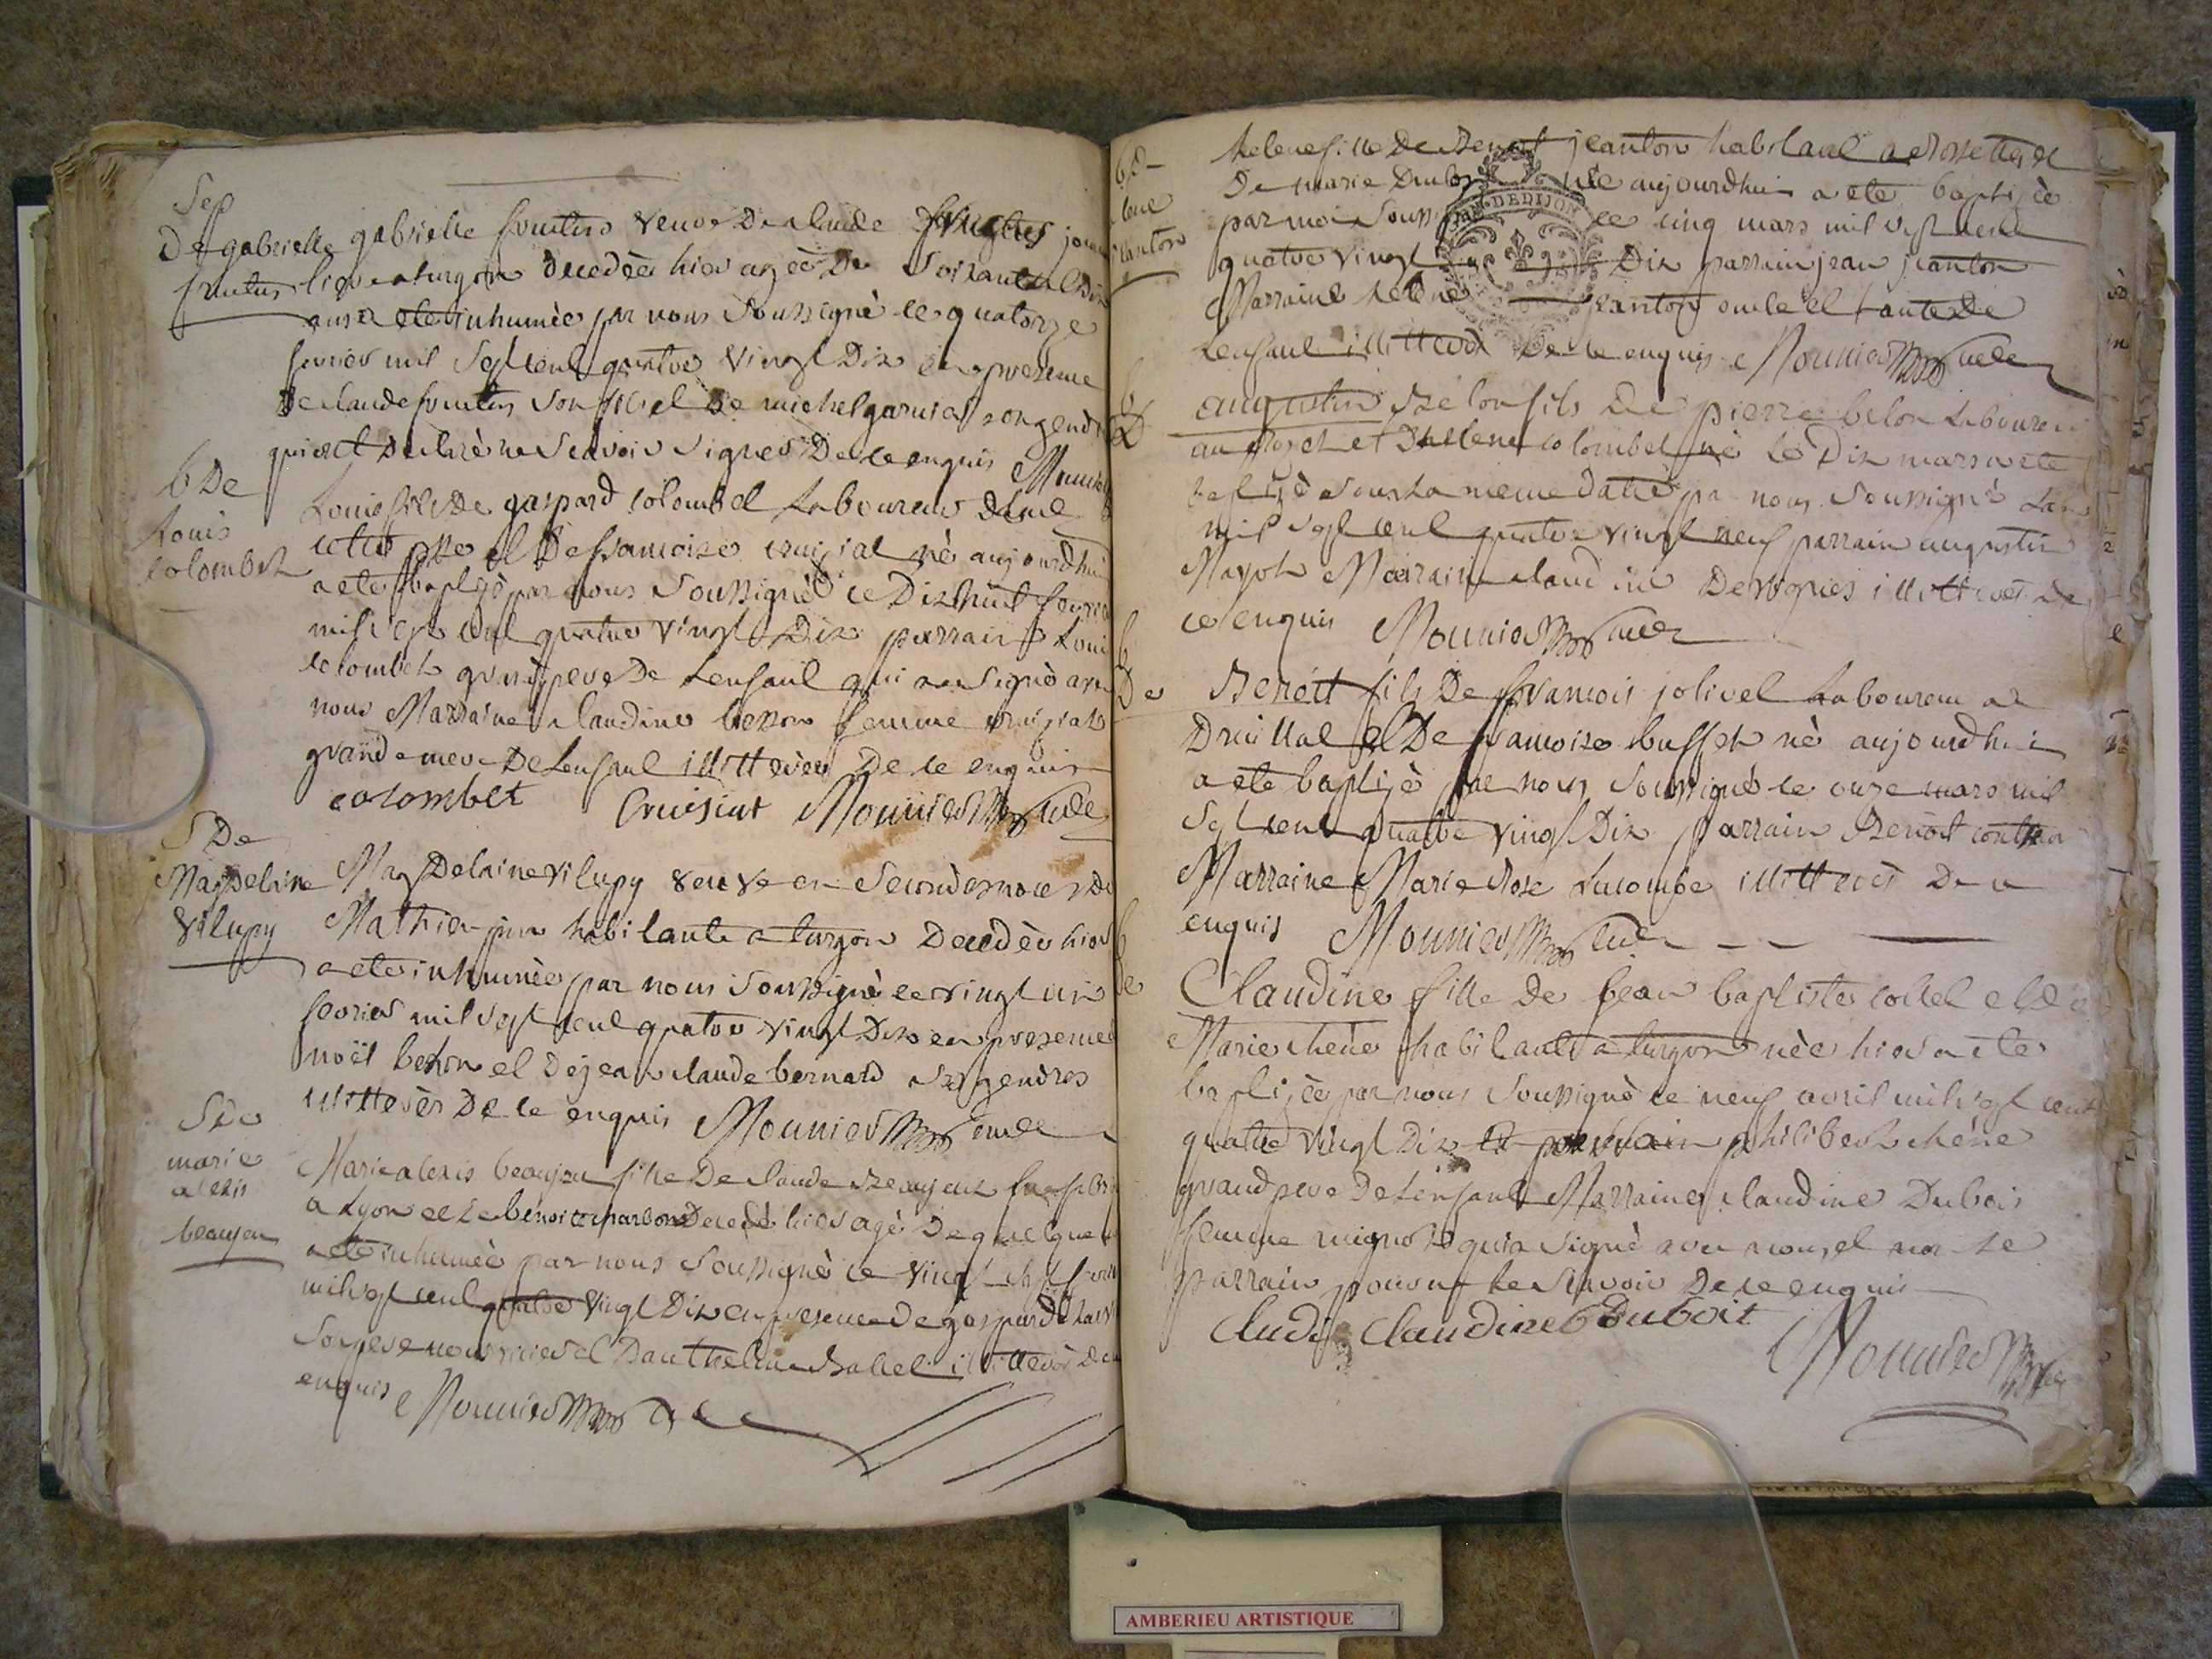 Sep
De gabrielle
fruitus
gabrielle fruitus veuve De claude fruitus
a turgon decedée hier agée De Soixante et Dix
ans a ete inhumée par nous Soussigné le quatorze
fevrier mil sept cent quatre vingt Dix en presence
De claude fruitus son fils et De michel garnier son gendre
qui ont declaré ne scavoir signer De ce enquis Mounier
b De
Louis
colombet
Louis fils De gaspard colombet Laboureur De
cette psse et De francoise cruisiat né aujourdhui
a ete baptisé par nous Soussigné ce Dixhuit fevrier
mil sept cent quatre vingt Dix parrain Louis
colombet grand pere De Lenfant qui a signé avec
nous Marraine claudine femme cruisiat
grande mere De Lenfant illitteréer De ce enquis
colombet Cruisiat Mounier curé
S De
Magdelaine
vilupy
MagDelaine vilupy veuve en Secondes noces de
Mathieu habitante a turgon Decedée hier
a ete inhumée par nous Soussigné ce vingt un
fevrier mil sept cent quatre vingt Dix en presence
noël et De jean claude bernard ses gendres
illitterés De ce enquis Mounier curé
S De
marie
alexis
beaujeu
Marie alexis beaujeu fille De claude Beaujeux
a Lyon et De benoite Decedé hier agé De quelque
a ete inhumée par nous Soussigné ce vingt sept fevrier
mil sept cent quatre vingt Dix en presence De gaspard
Son pere nourricier et Danthelme illitteré De ce
enquis Mounier curé
b D
helene
jeanton
helene fille De Benoit jeanton habitant a et
De marie née aujourdhui a ete baptisée
par moi Soussigné ce cinq mars mil sept cent
quatre vingt Dix parrain jean jeanton
Marraine helene jeanton oncle et tante De
Lenfant illitterés De ce enquis Mounier curé
b
D
augustin Belon fils De pierre belon Laboureur
au et Dhelene colombet né Le Dix mars a ete
baptisé sous La meme date par nous Soussigné Lan
mil sept cent quatre vingt neuf parrain augustin
Mayot Marraine claudine Devognes illitterés De
ce enquis Mounier curé
b
De
Benoit fils De francois jolivet Laboureur a
Druillat et De francoise buffet né aujourdhui
a ete baptisé par nous Soussigné ce onze mars mil
sept cent quatre vingt Dix parrain Benoit
Marraine Marie Rose Lacombe illitterés De ce
enquis Mounier curé
b
De
Claudine fille De jean baptiste collet et De
Marie chêne habitants a turgon née hier a ete
baptisée par nous Soussigné ce neuf avril mil sept cent
quatre vingt Dix parrain philibert chêne
grand pere De Lenfant Marraine claudine Dubois
femme mignot qui a signé avec nous, et non Le
parrain pour ne le scavoir De ce enquis
Claudine Duboit
Mounier curé
DE DIJON
AMBERIEU ARTISTIQUE